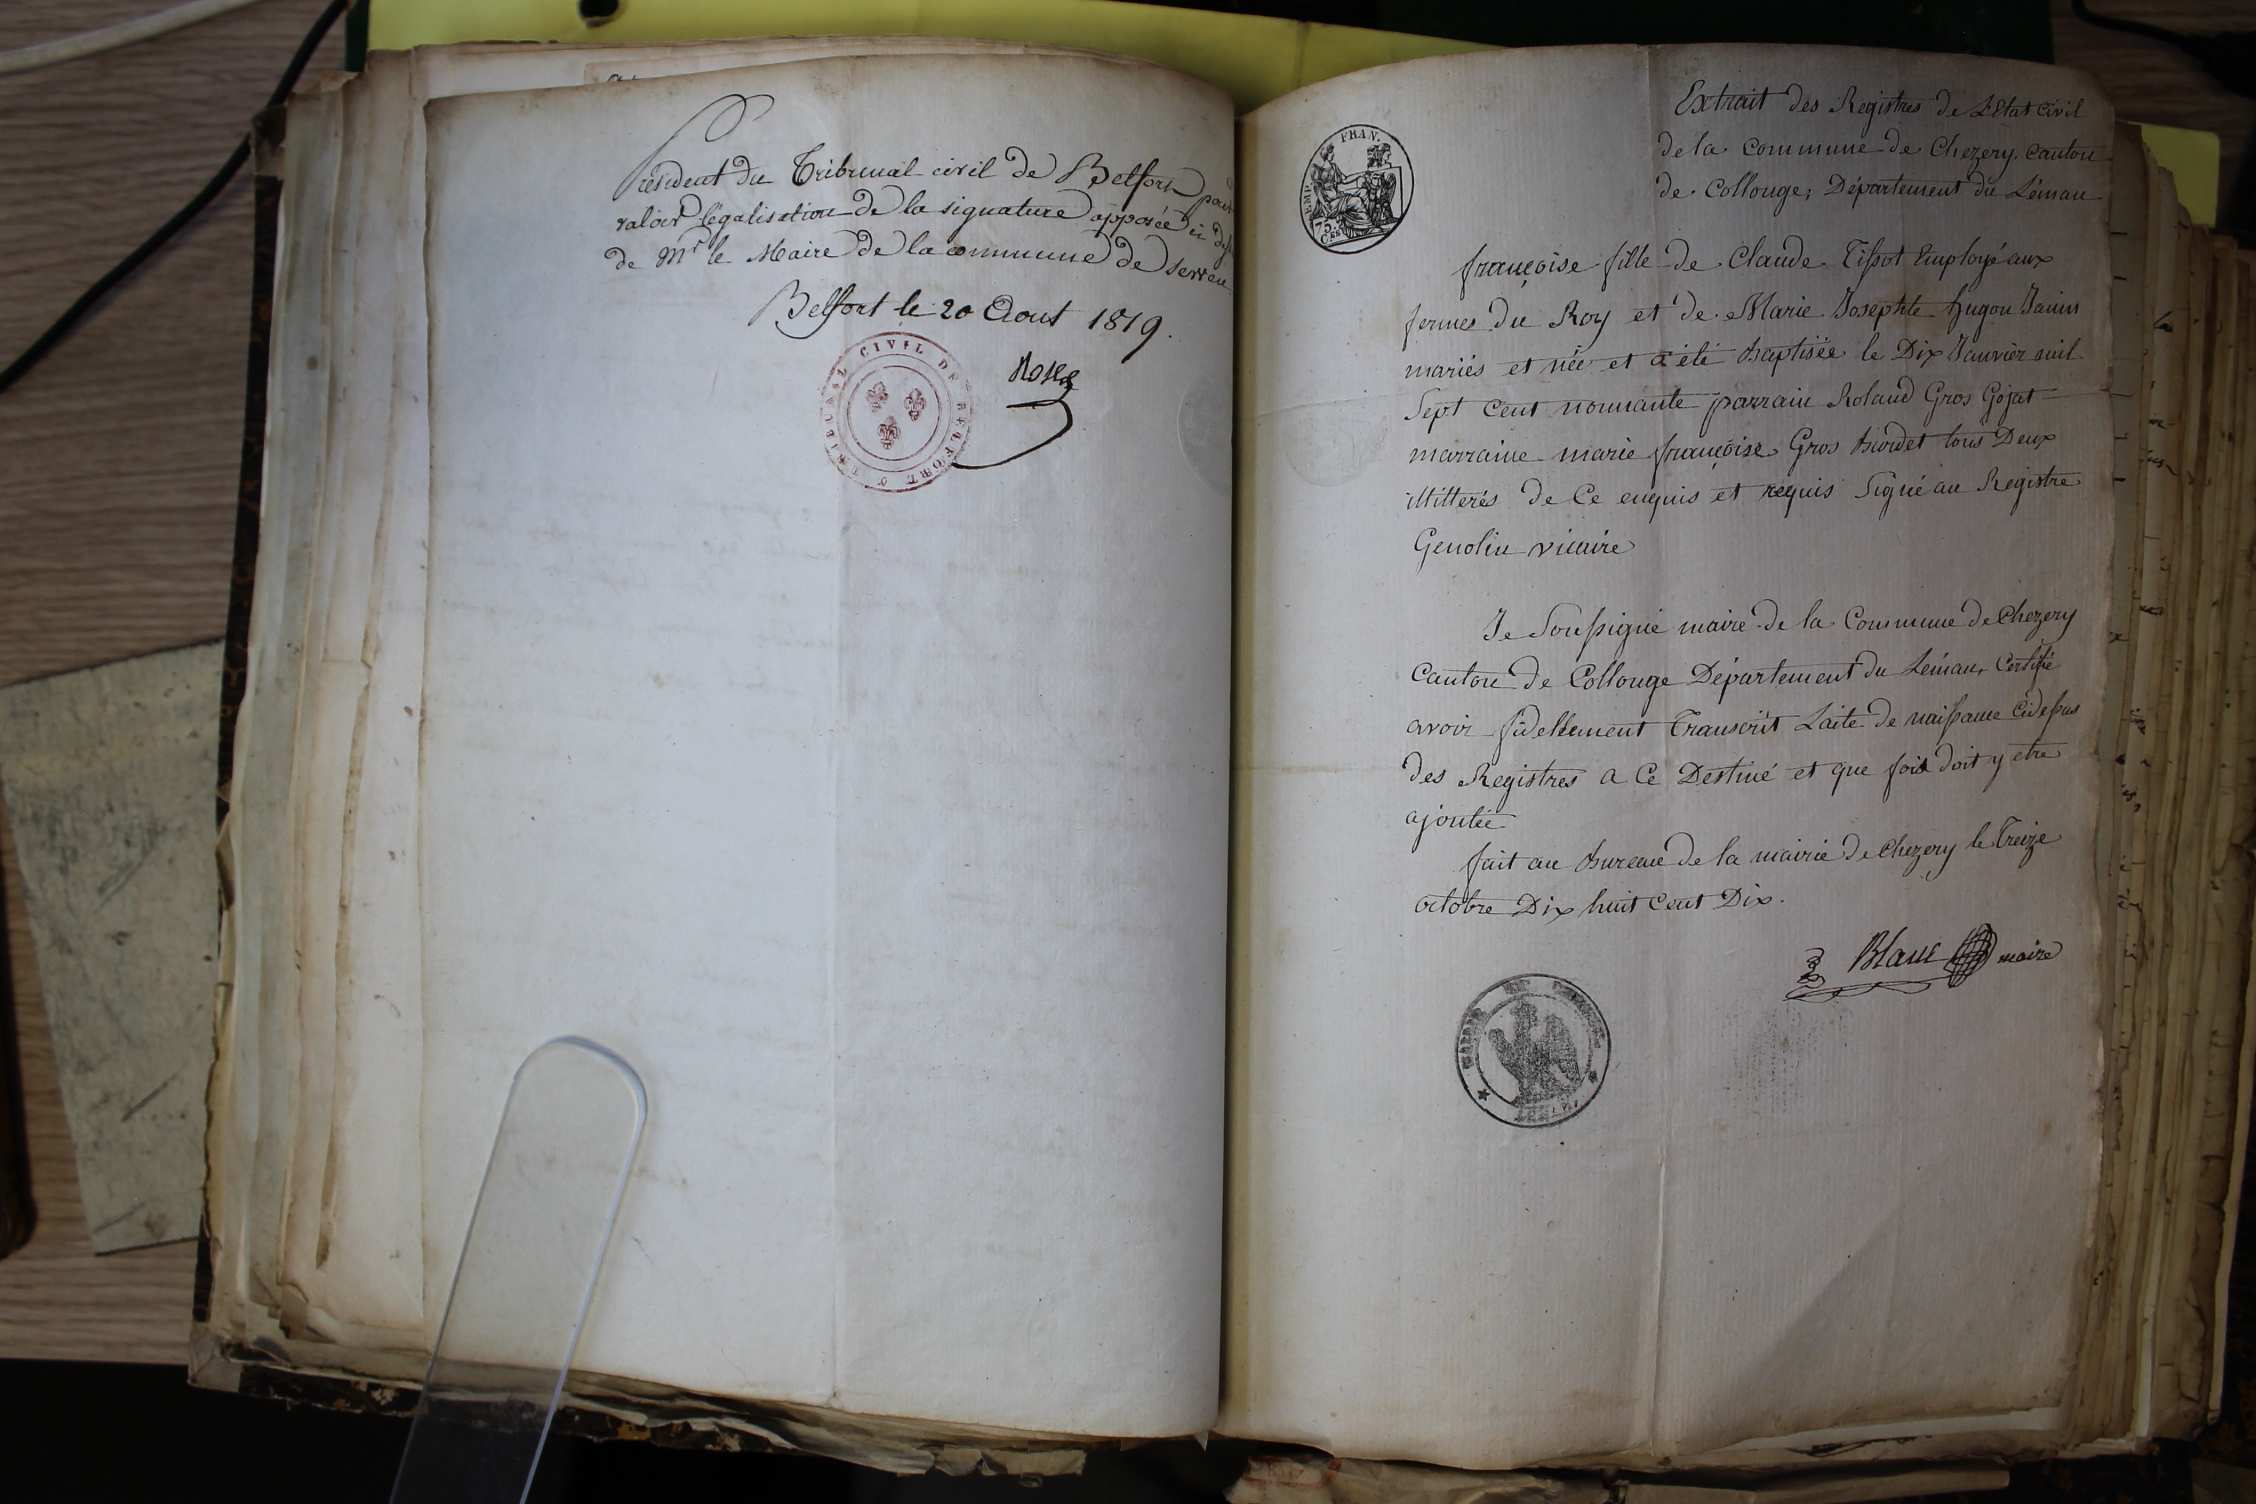 Président du Tribunal civil de Belfort pour
valoir légalisation de la signature apposée ci
de Mr le Maire de la commune de
Belfort le 20 Aout 1819.
TRIBUNAL CIVIL DE BELFORT
EMP. FRAN.
75 Cen
Extrait des Registres de L'Etat civil
de la commune de Chezery, canton
de Collonge, Département du Léman
françoise fille de Claude Tissot Employé aux
fermes du Roy et de Marie Josephte hugon Janin
mariés et née et a été baptisée le Dix Janvier mil
Sept Cent nonnante parrain Roland Gros Gojat
marraine marie françoise Gros burdet tous Deux
illitterés de Ce enquis et requis Signé au Registre
Genolin vicaire
Je Soussigné maire de la Commune de Chezery
Canton de Collonge Département du Léman, Certifie
avoir fidellement Transcrit L'acte de naissance Cidessus
des Registres a Ce Destiné et que fois doit y etre
ajoutée
fait au bureau de la mairie de Chezery le Treize
octobre Dix huit Cent Dix.
Blanc maire